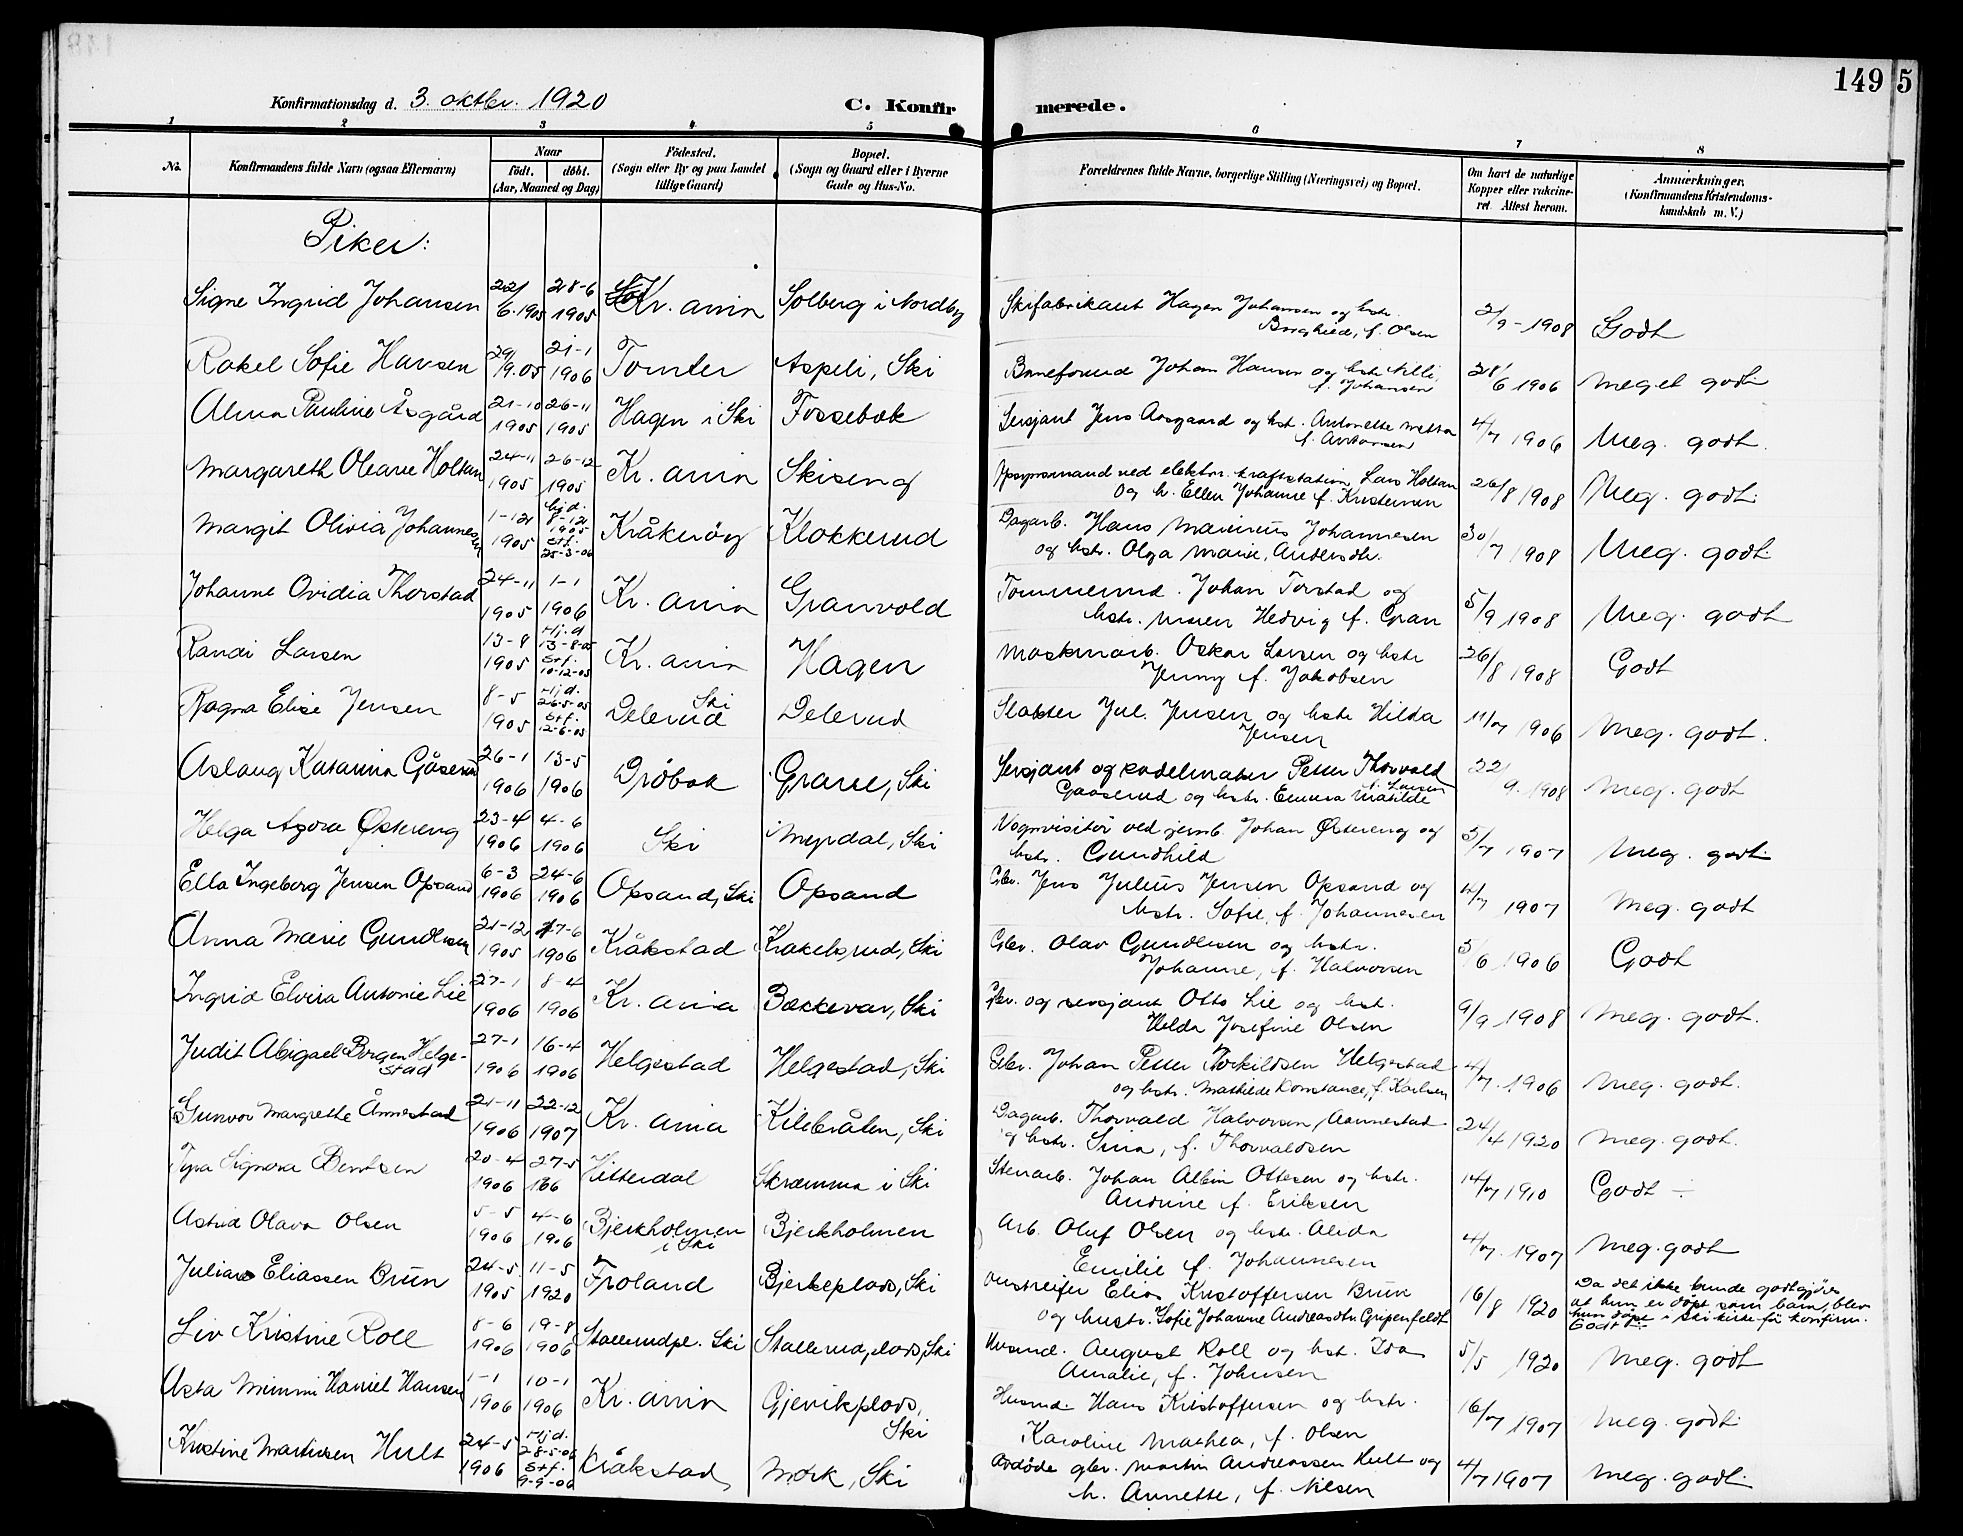 149 5
Konfirmationsdag d. 3. oktbr. 1920 C. Konfirmerede.
1 2 3 4 5 6 7 8
No. Konfirmandens fulde Navn (ogsaa Efternavn)
Naar
födt. döbt.
(Aar, Maaned og Dag)
Födested.
(Sogn eller By og paa Landet tillige Gaard)
Bopæl.
(Sogn og Gaard eller i Byerne Gade og Hus-No.
Forældrenes fulde Navne, borgerlige Stilling (Næringsvei) og Bopæl.
Om havt de naturlige Kopper eller vakcineret. Attest herom.
Anmærkninger.
(Konfirmandens Kristendomskundskab m. V.)
Piker:
Signe Ingrid Johansen 22/6. 1905 28-6 1905 Kr. ania Solberg i Nordby Skifabrikant Hagen Johansen og hstr. Borghild, f. Olsen 2/9-1908 Godt
Rakel Sofie Hansen 21-1 1906 Tomter Aspeli, Ski Baneformd Johan Hansen og hstr f. Johansen 28/6 1906 meget godt
Alma Pauline Åsgård 21-10 1905 26-11 1905 Hagen i Ski Fossebæk Sersjant Jens Aasgaard og hst. Antonette f. Antonsen 4/7 1906 Meg. godt.
Margareth Oleane Holtan 24-11 1905 26-12 1905 Kr. ania Skiseng ved elektr. kraftstation Lars Holtan og h. Ellen Johanne f. Kristensen 26/8 1908 Meg. godt.
Margit Olivia Johannesen 1-12 1905 hj.d. 8-12 1905 stf. 25-3-06 Kråkerøy Klokkerud Dagarb. Hans Marinius Johannesen og hstr. Olga Marie, Andersdtr. 30/7 1908 Meg. godt.
Johanne Ovidia Thorstad 24-11 1905 1-1 1906 Kr. ania Granvold Tømmermd. Johan Torstad og hstr. Maren Hedvig f. Gran 5/9 1908 Meg. godt
Randi Larsen 13-8 1905 Hj.d 13-8-05 stf. 10-12-05 Kr. ania Hagen Maskinarb. Oskar Larsen og hstr Jenny f. Jakobsen 26/8 1908 Godt
Ragna Elise Jensen 8-5 1905 Hj.d. 26-5-05 stf. 12-6-05 Delerud Ski Delerud Slakter Jul. Jensen og hstr Hilda Jensen 11/7 1906 Meg. godt.
Aslaug Katarina Gåserud 26-1 1906 13-5 1906 Drøbak Grane, Ski Sersjant og sadelmaker Petter Thorvald Gaaserud og hstr. Emma Matilde f. Larsen 22/9. 1908 Meg. godt
Helga Agora Østereng 23-4 1906 4-6 1906 Ski Myrdal, Ski Vognvisitør ved jernb. Johan Østereng og hstr. Gunhild 5/7 1907 Meg. godt.
Ella Ingeborg Jensen Opsand 6-3 1906 24-6 1906 Opsand, Ski Opsand Gbr. Jens Julius Jensen Opsand og hstr. Sofie, f. Johannesen 4/7 1907 Meg. godt
Anna Marie Gundersen 21-12 1905 17-6 1906 Kråkstad Krakelsrud, Ski Gbr. Olav Gundersen og hstr. Johanne, f. Halvorsen 5/6 1906 Godt
Ingrid Elvira Antonie Lie 27-1 1906 8-4 1906 Kr. ania Bækkevar, Ski Gbr. og sersjant Otto Lie og hst. Hilda Josefine Olsen 9/9 1908 Meg. godt.
Judit Abigael Borgen Helgestad 27-1 1906 16-4 1906 Helgestad Helgestad, Ski Gbr. Johan Petter Torkildsen Helgestad og hstr. Mathilde Konstance, f. Karlsen 4/7. 1906 Meg. godt.
Gunvor Margrethe Ånnestad 21-11 1906 22-12 1907 Kr. ania Kilebråten, Ski Dagarb. Thorvald Halvorsen Aannestad og hstr. Sina, f. Thorvaldsen 24/4 1920 Meg. godt.
Tyra Signora Berntsen 20-4 1906 27-5 Hitterdal Skræmma i Ski Stenarb. Johan Albin Ottesen og hstr. Andrine f. Eriksen 14/7 1910 Godt -
Astrid Olava Olsen 5-5 1906 4-6 1906 Bjerkholmen i Ski Bjerkholmen Arb. Oluf Olsen og hstr. Alida Emilie f. Johannesen 4/7. 1907 Meg. godt
Juliane Eliassen Brun 24-5 1905 11-5 1920 Froland Bjerkeplads, Ski Omstreifer Elias Kristoffersen Brun og hustr. Sofie Johanne Andreasdtr. Gripenfeldt 16/8 1920 Da det ikke kunde godtgjøres at hun er døpt som barn, blev hun døpt i Ski kirke før konfirm. Godt -
Liv Kristine Roll 8-6 1906 19-8 1906 Stallerudpl. Ski Stallerudplads, Ski Husmd. August Roll og hst. Ida Amalie, f. Johnsen 5/5 1920 Meg. godt
Asta Mimmi Harriet Hansen 1-1 1906 10-1 1906 Kr. ania Gjevikplads, Ski Husmd. Hans Kristoffersen og hstr. Karoline Mathea, f. Olsen 16/7 1907 Meg. godt.
Kristine Martinsen Hult 24-5 1906 Hj.d. 28-5-06 stf. 9-9-06 Kråkstad Mørk, Ski Avdøde gbr. Martin Andreassen Hult og h. Annette, f. Nilsen 4/7 1907 Meg. godt.